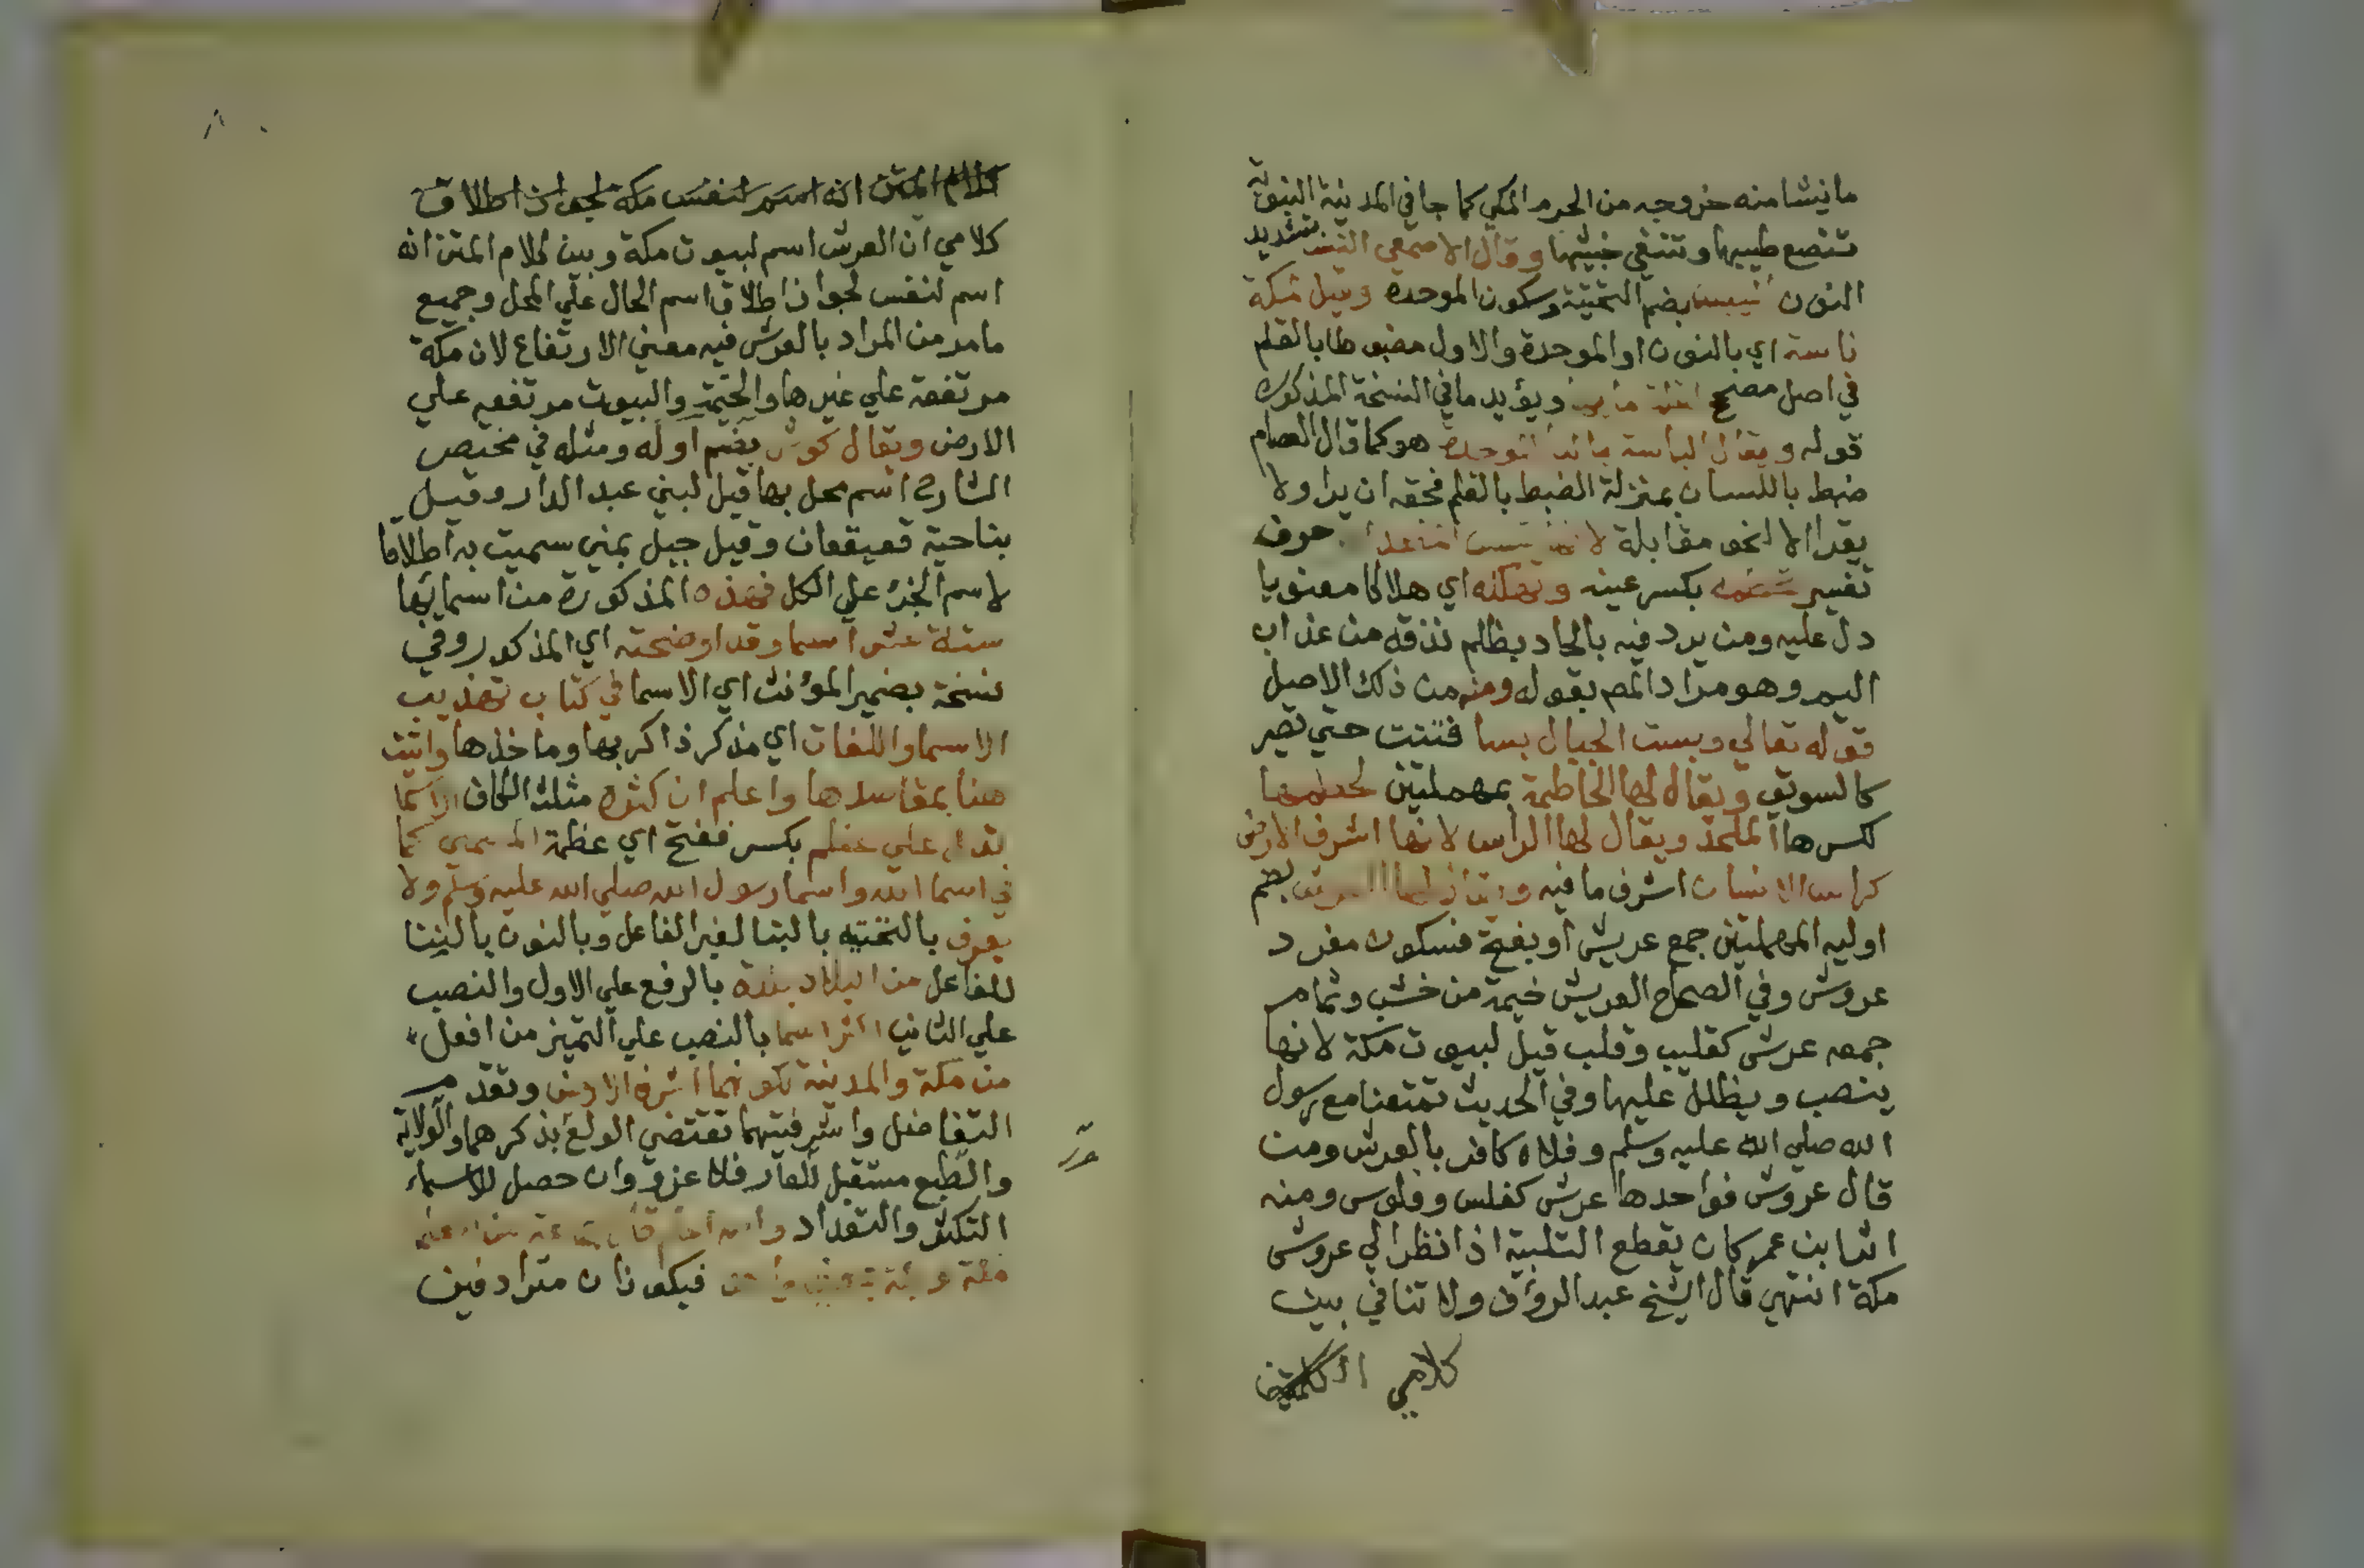 ما نيشا منه خروجه من الحرم المكي كما جا في المدينة النبوية
تنصع طيبها وتنفي خبثها وقال الاصمعي النس بتشديد
النون نيبسا بضم التحتية وسكون الموحدة وقيل لمكة
ناسة اي بالنون او الموحدة والاول مضبوطا بالقلم
في اصل مصحح ويؤيد ما في النسخة المذكورة
قوله ويقال الباسة بالموحدة هو كما قال العصام
ضبط باللسان بمنزلة الضبط بالقلم فحقه ان يرا ولا
يقرا الا لنحو مقابلة لانها تبس من الحد حرف
تفسير تحطمه بكسر عينه وتهلكه اي هلاكا معنويا
دل عليه ومن يرد فيه بالحاد بظلم نذقه من عذاب
اليم وهو مراد المص بقوله ومنه من ذلك الاصيل
قوله تعالي وبست الجبال بسا فتتت حتي تصير
كالسويق ويقال لها الحاطمة بمهملتين لحطمها
لكسرها الملحد ويقال لها الراس لانها اشرف الارض
كراس الانسان اشرف ما فيه ويقال لها العرش بضم
اوليه المهملتين جمع عريش او بفتح فسكون مفرد
عروش وفي الصحاح العريش خيمة من خشب وثمام
جمعه عرش كقليب وقلب قيل لبيوت مكة لانها
ينصب ويظلل عليها وفي الحديث تمتعنا مع رسول
الله صلي الله عليه وسلم وفلان كافر بالعرش ومن
قال عروش فواحدها عرش كفلس وفلوس ومنه
ان ابن عمر كان يقطع التلبية اذا نظر الي عروش
مكة انتهي قال الشيخ عبد الرؤف ولا تنافي بين
كلامي
كلام المتن انه اسم لنفس مكة لجواز اطلاق
كلامي ان العرش اسم لبيوت مكة وبين كلام المتن انه
اسم لنفس لجواز اطلاق اسم الحال علي المحل وجميع
ما مر من المراد بالعرش فيه معني الارتفاع لان مكة
مرتفعة علي غيرها والخيمة والبيوت مرتفعه علي
الارض ويقال كوش بضم اوله ومثله في مختص
الشارح اسم محل بها قيل لبني عبد الدار وقيل
بناحية قعيقعان وقيل جبل بمني سميت به اطلاقا
لاسم الجزء علي الكل فهذه المذكورة من اسمائها
ستة عشر اسما وقد اوضحته اي المذكور وفي
نسخة بضمير المؤنث اي الاسما في كتاب تهذيب
الاسما واللغات اي مذكر ذاكر بها وما خذها واتيت
هنا بمقاسدها واعلم ان كثرة مثلث الكاف الاسما
تدل علي عظم بكسر ففتح اي عظمة المسمي كما
في اسما الله واسما رسول الله صلي الله عليه وسلم ولا
يعرف بالتحتيه بالبنا لغير الفاعل وبالنون بالبنا
للفاعل من البلاد بلدة بالرفع علي الاول والنصب
علي الثاني اكثر اسما بالنصب علي التميز من افعل
من مكة والمدينة لكونهما اشرف الارض وتقدم
التفاضل واشرفيتهما تقتضي الولع بذكرهما والولاية
والطبع مستقبل فلا غرو وان حصل للاسماء
التكثر والتعداد
فيكونان مترادفين